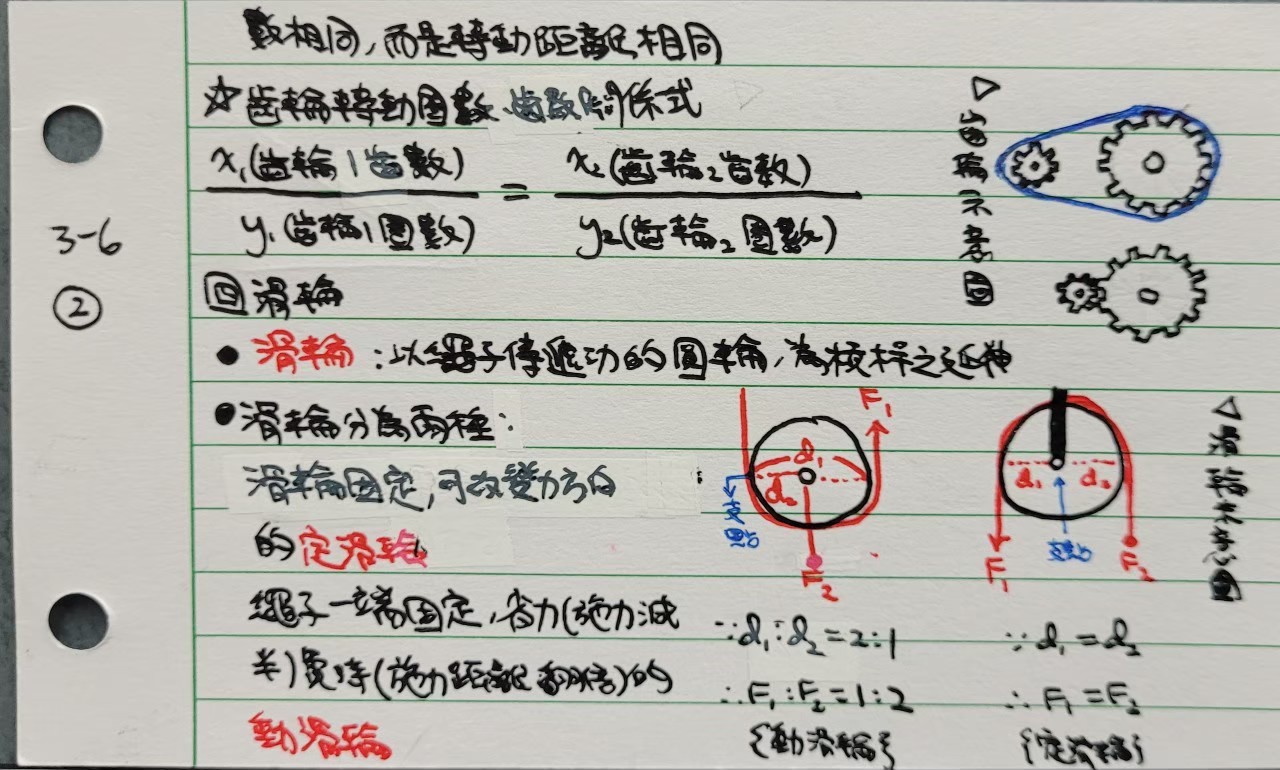 數相同,而是轉動距離相同
☆齒輪轉動圈數、齒數關係式
x₁(齒輪1齒數) = x₂(齒輪₂齒數)
y₁(齒輪1圈數) y₂(齒輪₂圈數)
▷齒輪示意圖
3-6
②
回滑輪
●滑輪:以繩子傳遞动的圓輪,為槓桿之延伸
●滑輪分為兩種:
滑輪固定,可改變力方向
的定滑輪
繩子一端固定,省力(施力減
半)費時(施力距離翻倍)的
動滑輪
F₁
d₁
d₂
支點
F₂
∵d₁:d₂=2:1
∴F₁:F₂=1:2
{動滑輪}
d₁
d₂
F₁
支點
F₂
∵d₁=d₂
∴F₁=F₂
{定滑輪}
▷滑輪示意圖